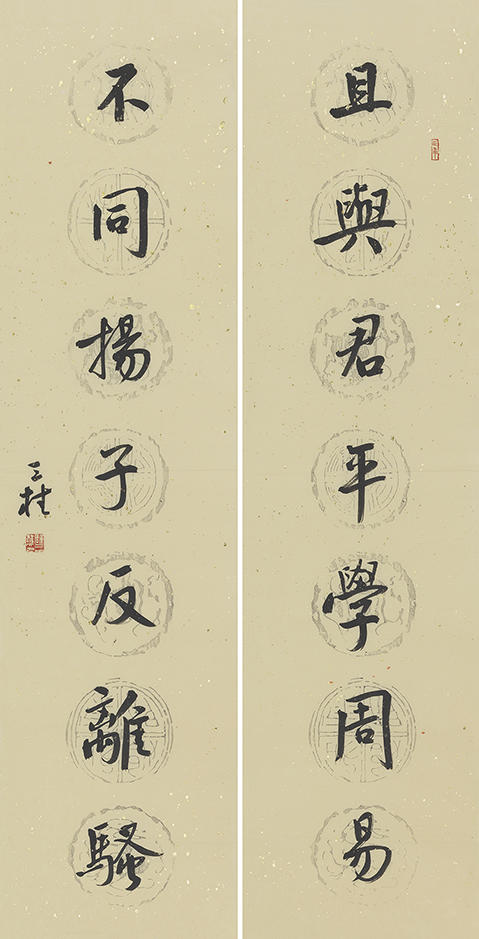 且與君平學周易
不同揚子反離騷
三桂